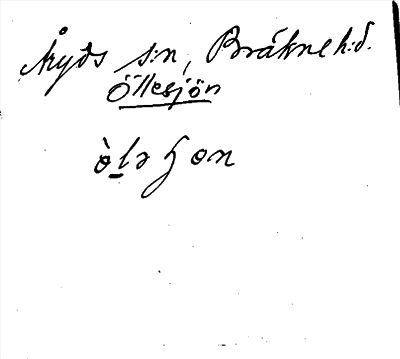 Åryds s:n, Bräkne h:d.
Öllesjön
òlə ɧon